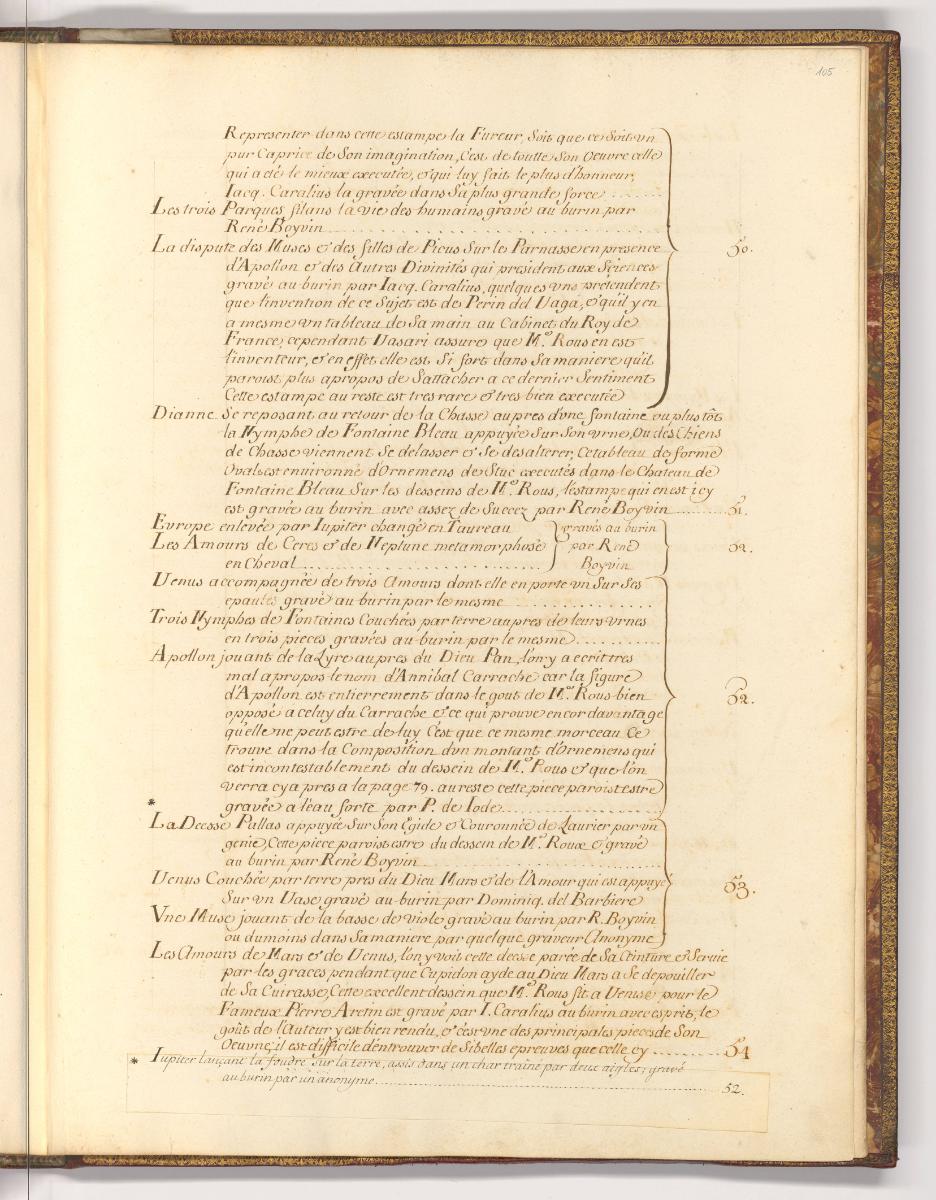 105
Representer dans cette estampe la Fureur, Soit que ce Soit vn
pur Caprice de Son imagination, C'est de toutte Son Oeuvre celle
qui a eté le mieux executée, & qui luy fait le plus d'honneur,
Iacq. Caralius la gravée dans Sa plus grande force
Les trois Parques filans la vie des humains gravé au burin par
René Boyvin
La dispute des Muses & des filles de Picus Sur le Parnasse en presence
d'Apollon & des Autres Divinités qui president aux Sciences
gravé au burin par Iacq. Caralius, quelques vns pretendent
que l'invention de ce Sujet est de Perin del Vaga, & qu'il y en
a mesme vn tableau de Sa main au Cabinet du Roy de
France, cependant Vasari assure que Me. Rous en est
l'inventeur, & en effet elle est Si fort dans Sa maniere qu'il
paroist plus apropos de S'attacher a ce dernier Sentiment
Cette estampe au reste est tres rare & tres bien executée
50.
Dianne Se reposant au retour de la Chasse aupres d'vne fontaine ou plus tôt
la Nymphe de Fontaine Bleau appuyée Sur Son vrne, Ou des Chiens
de Chasse viennent Se delasser & Se desalterer, Ce tableau de forme
Ovale est environné d'Ornemens de Stuc executés dans le Chateau de
Fontaine Bleau Sur les desseins de Me. Rous, l'estampe qui en est icy
est gravée au burin avec assez de Succez par René Boyvin 51.
Evrope enlevée par Iupiter changé en Taureau
Les Amours de Ceres & de Neptune metamorphosé
en Cheval
gravés au burin
par René
Boyvin
52.
Venus accompagnée de trois Amours dont elle en porte vn Sur Ses
epaules gravé au burin par le mesme
Trois Nymphes de Fontaines Couchées par terre aupres de leurs vrnes
en trois pieces gravées au burin par le mesme
Apollon jouant de la Lyre aupres du Dieu Pan, l'on y a ecrit tres
mal apropos le nom d'Annibal Carrache car la figure
d'Apollon est entierrement dans le gout de Me. Rous bien
opposé a celuy du Carrache & ce qui prouve encor davantage
qu'elle ne peut estre de luy C'est que ce mesme morceau Ce
trouve dans la Composition d'vn montant d'Ornemens qui
est incontestablement du dessein de Me. Rous & que l'on
verra cy apres a la page 79. au reste cette piece paroist estre
gravée a l'eau forte par P. de Iode
52.
*
La Deesse Pallas appuyée Sur Son Egide & Couronnée de Laurier par vn
genie, Cette piece paroist estre du dessein de Me. Roux & gravé
au burin par René Boyvin
Venus Couchée par terre pres du Dieu Mars & de l'Amour qui est appuyé
Sur vn Vase gravé au burin par Dominiq. del Barbiere
Vne Muse jouant de la basse de viole gravé au burin par R. Boyvin
ou du moins dans Sa maniere par quelque graveur Anonyme
53.
Les Amours de Mars & de Venus, l'on y voit cette deesse parée de Sa Ceinture & Servie
par les graces pendant que Cupidon ayde au Dieu Mars a Se depouiller
de Sa Cuirasse, Cette excellent dessein que Me. Rous fit a Venise pour le
Fameux Pierre Aretin est gravé par I. Caralius au burin avec esprit, le
goût de l'Auteur y est bien rendu, & c'est vne des principales pieces de Son
Oeuvre, il est difficile d'en trouver de Si belles epreuves que celle cy 54
* Iupiter lançant la foudre sur la terre, assis dans un char trainé par deux aigles; gravé
au burin par un anonyme 52.